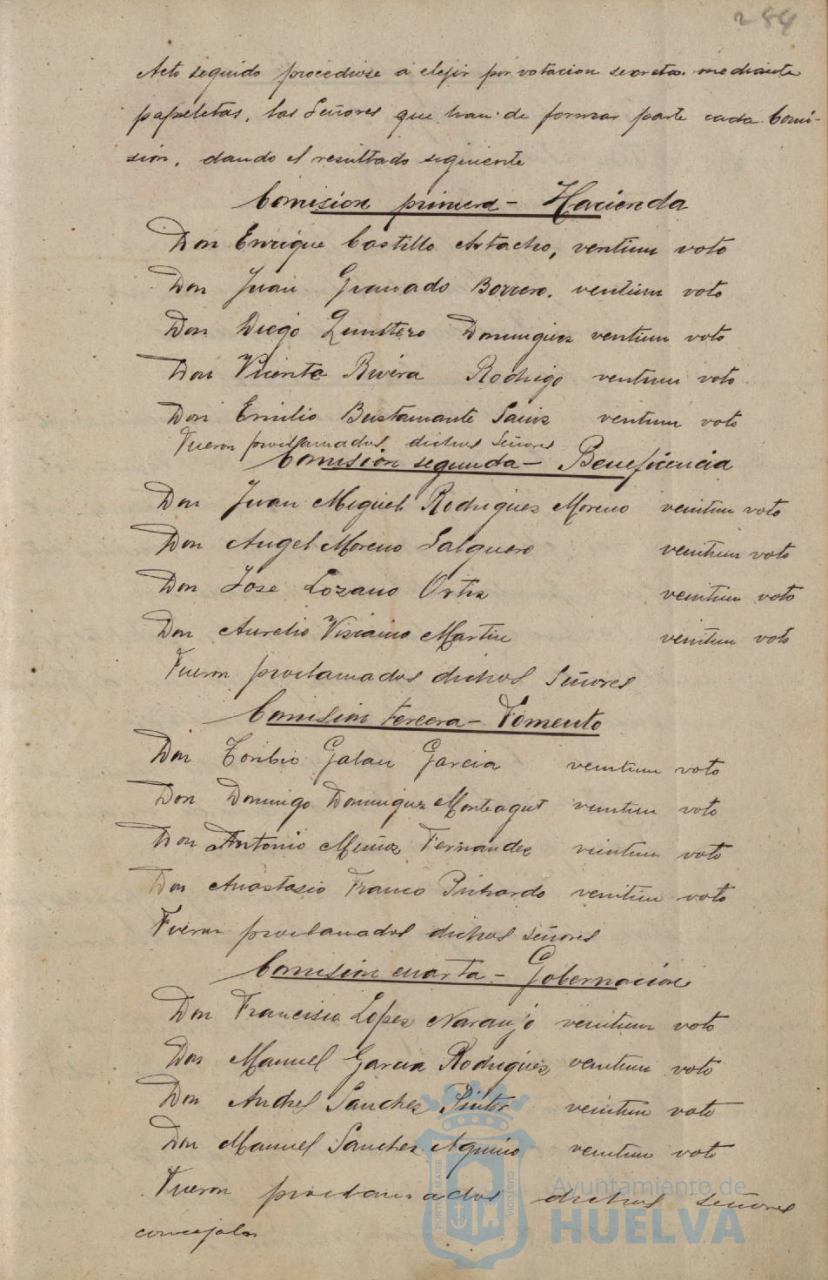 284
Acto seguido procediose a elejir por votacion secreta mediante
papeletas, los Señores que han de formar parte cada Comi-
sión, dando el resultado siguiente
Comision primera - Hacienda
Don Enrique Castillo Artacho, ventiun voto
Don Juan Granado Borrero. ventiun voto
Don Diego Quintero Dominguez ventiun voto
Don Vicente Rivera Rodrigo ventiun voto
Don Emilio Bustamante Sainz ventiun voto
Fueron proclamados dichos Señores
Comisión segunda - Beneficencia
Don Juan Miguel Rodriguez Moreno venitiun voto
Don Angel Moreno Salguero venitiun voto
Don Jose Lozano Ortiz venitiun voto
Don Aurelio Vizcaino Martin venitiun voto
Fueron proclamados dichos Señores
Comision tercera - Fomento
Don Toribio Galan Garcia venitiun voto
Don Domingo Dominguez Monteagut venitiun voto
Don Antonio Muñoz Fernandez veintiun voto
Don Anastasio Franco Pichardo venitiun voto
Fueron proclamados dichos señores
Comisión cuarta - Gobernacion
Don Francisco Lopez Naranjo venitiun voto
Don Manuel Garcia Rodriguez venitiun voto
Don Andres Sanchez Pintor venitiun voto
Don Manuel Sanchez Aquino venitiun voto
Fueron proclamados dichos señores
concejales
Ayuntamiento de
HUELVA